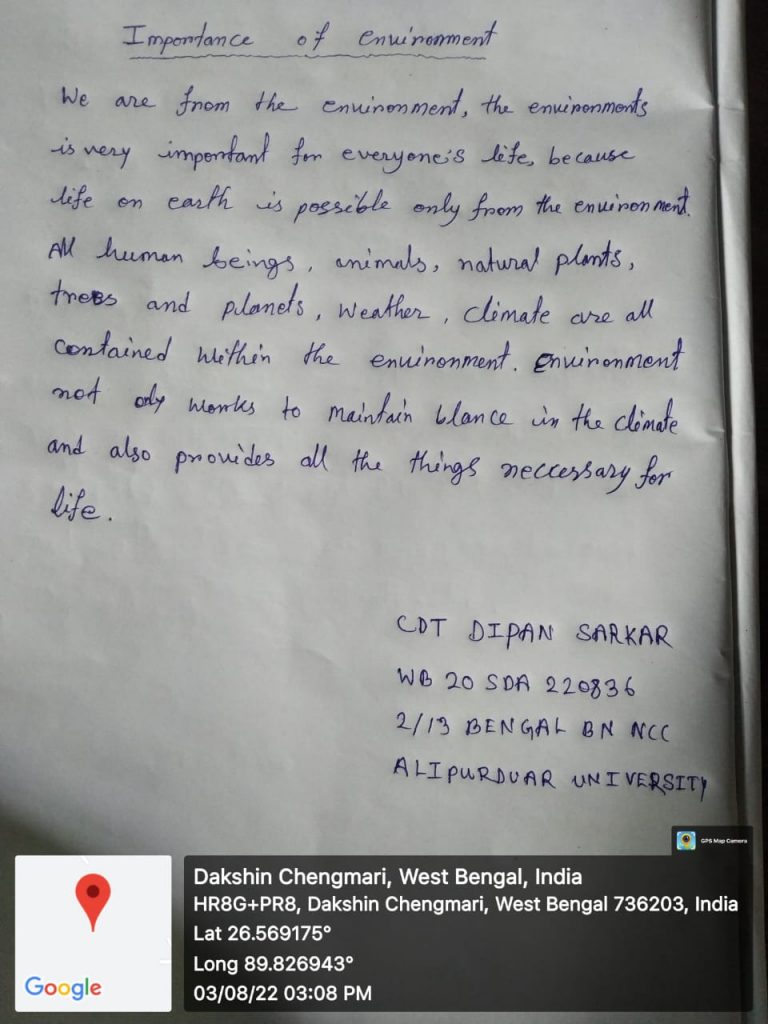 Importance of environment
We are from the environment, the environments
is very important for everyone's life, because
life on earth is possible only from the environment.
All human beings, animals, natural plants,
trees and planets, weather, climate are all
contained within the environment. Environment
not only works to maintain blance in the climate
and also provides all the things neccessary for
life.
CDT DIPAN SARKAR
WB 20 SDA 220836
2/13 BENGAL BN NCC
ALIPURDUAR UNIVERSITY
GPS Map Camera
Dakshin Chengmari, West Bengal, India
HR8G+PR8, Dakshin Chengmari, West Bengal 736203, India
Lat 26.569175°
Long 89.826943°
03/08/22 03:08 PM
Google